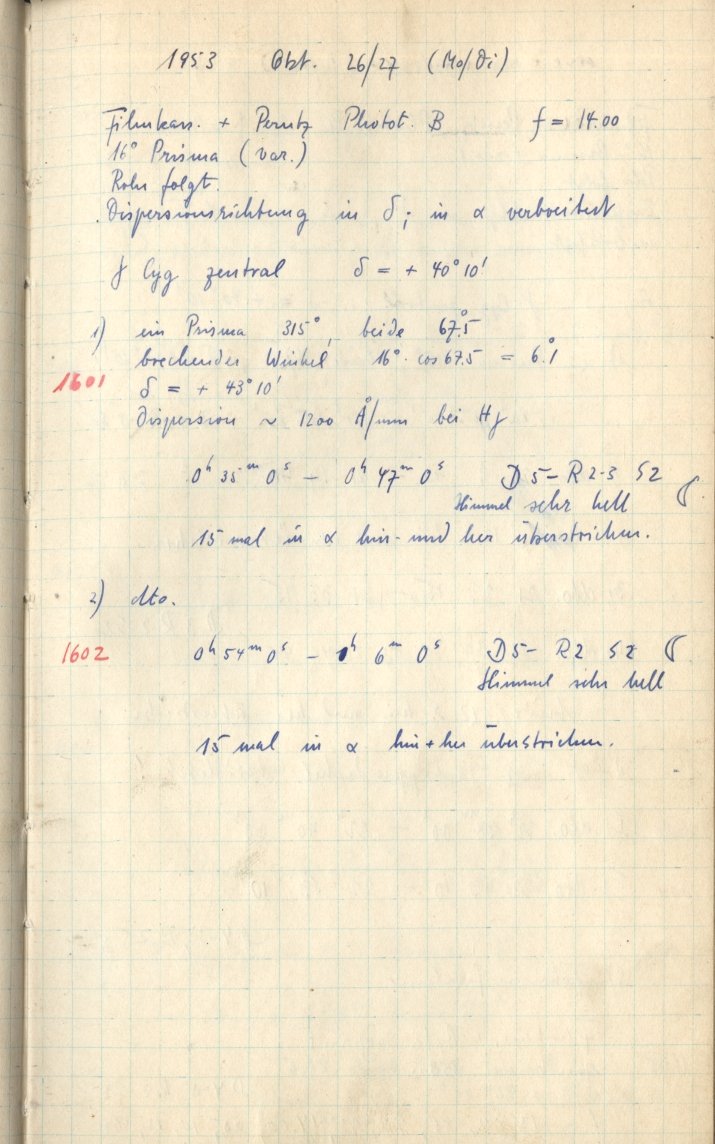 1953 Okt. 26/27 (Mo/Di)
Filmkass. + Perutz Photot. B f = 14.00
16° Prisma (var.)
Rohr folgt.
Dispersionsrichtung in δ; in α verbreitert
γ Cyg zentral δ = + 40° 10'
1) ein Prisma 315°, beide 67°.5
brechender Winkel 16° · cos 67.5 = 6°.1
1601 δ = + 43° 10'
Dispersion ~ 1200 Å/mm bei Hγ
0ʰ 35ᵐ 0ˢ – 0ʰ 47ᵐ 0ˢ D 5– R 2-3 S 2
Himmel sehr hell
15 mal in α hin- und her überstrichen.
2) dto.
1602 0ʰ 54ᵐ 0ˢ – 1ʰ 6ᵐ 0ˢ D 5– R 2 S 2
Himmel sehr hell
15 mal in α hin + her überstrichen.